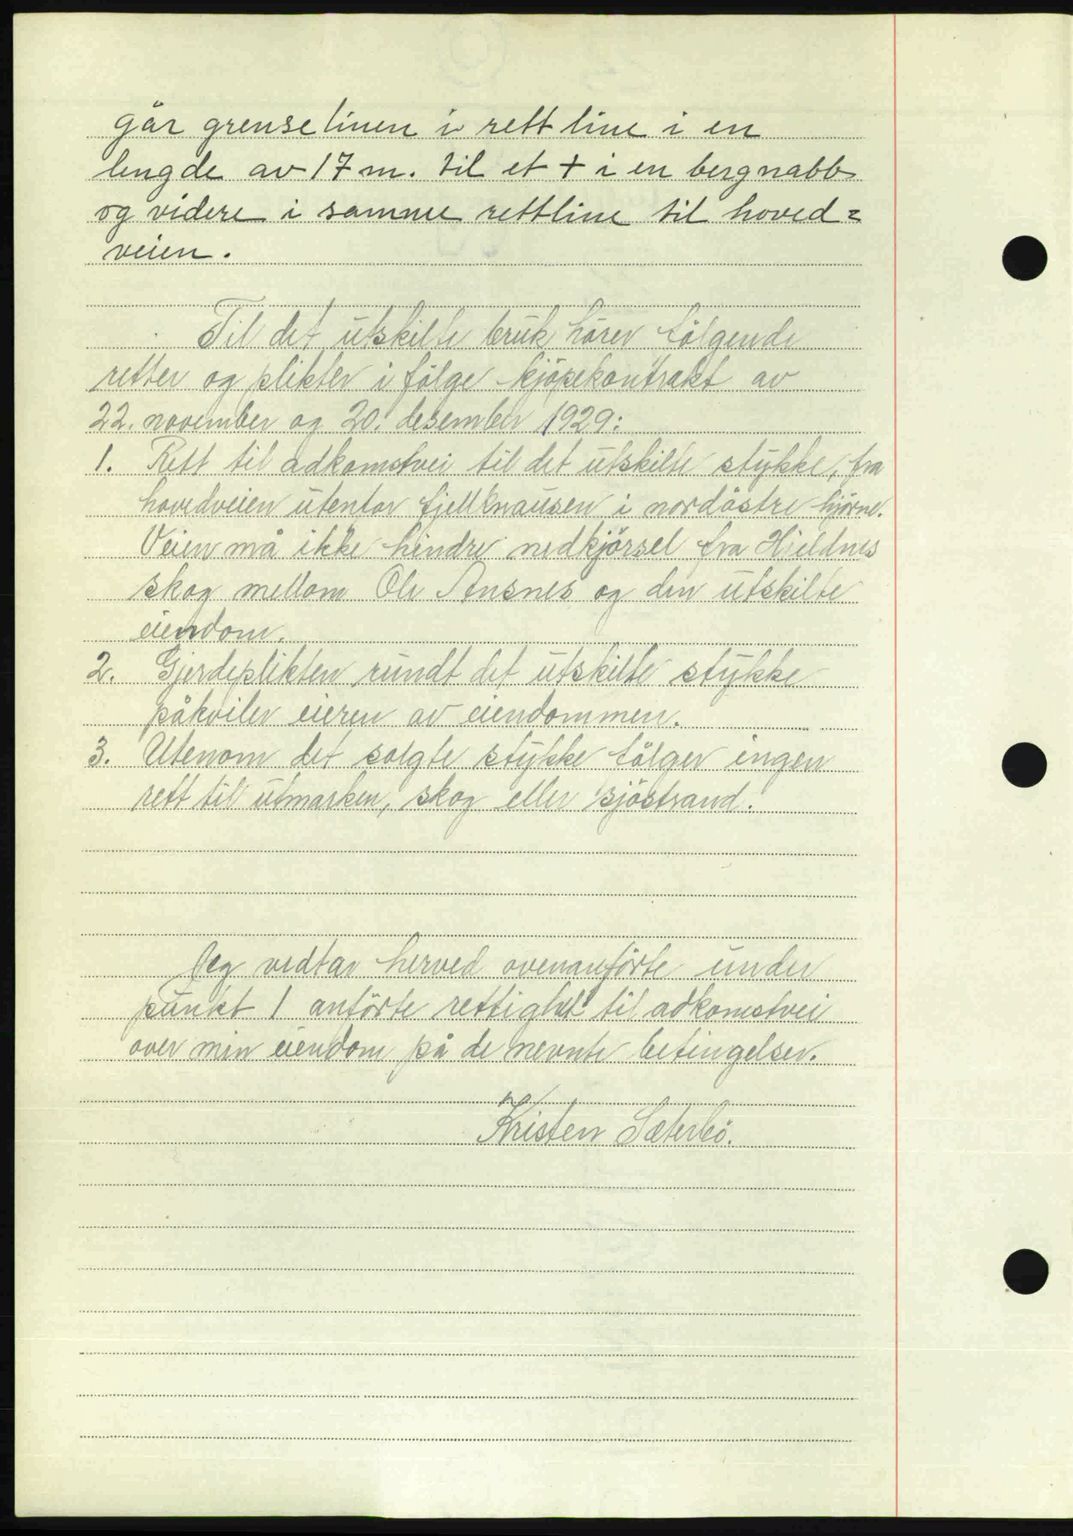 går grenselinen i rett line i en
lengde av 17 m. til et + i en bergnabb
og videre i samme rettline til hoved=
veien.
Til det utskilte bruk hører følgende
retter og plikter i følge kjøpekontrakt av
22. november og 20. desember 1929:
1. Rett til adkomstvei til det utskilte stykke, fra
hovedveien utenfor fjellknausen i nordøstre hjørne.
Veien må ikke hindre nedkjørsel fra Hjeldnes
skog mellom Ole Ansnes og den utskilte
eiendom.
2. Gjerdeplikten rundt det utskilte stykke
påkviler eieren av eiendommen.
3. Utenom det solgte stykke følger ingen
rett til utmarken, skog eller sjøstrand.
Jeg vedtar herved ovenanførte under
punkt 1 anførte rettighet til adkomstvei
over min eiendom på de nevnte betingelser.
Kristen Sæterbö.